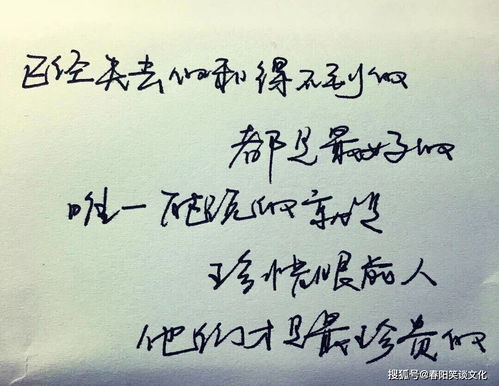 已经失去的和得不到的
都是最好的
唯一能现的就是
珍惜眼前人
他们才是最珍贵的
搜狐号@春阳笑谈文化